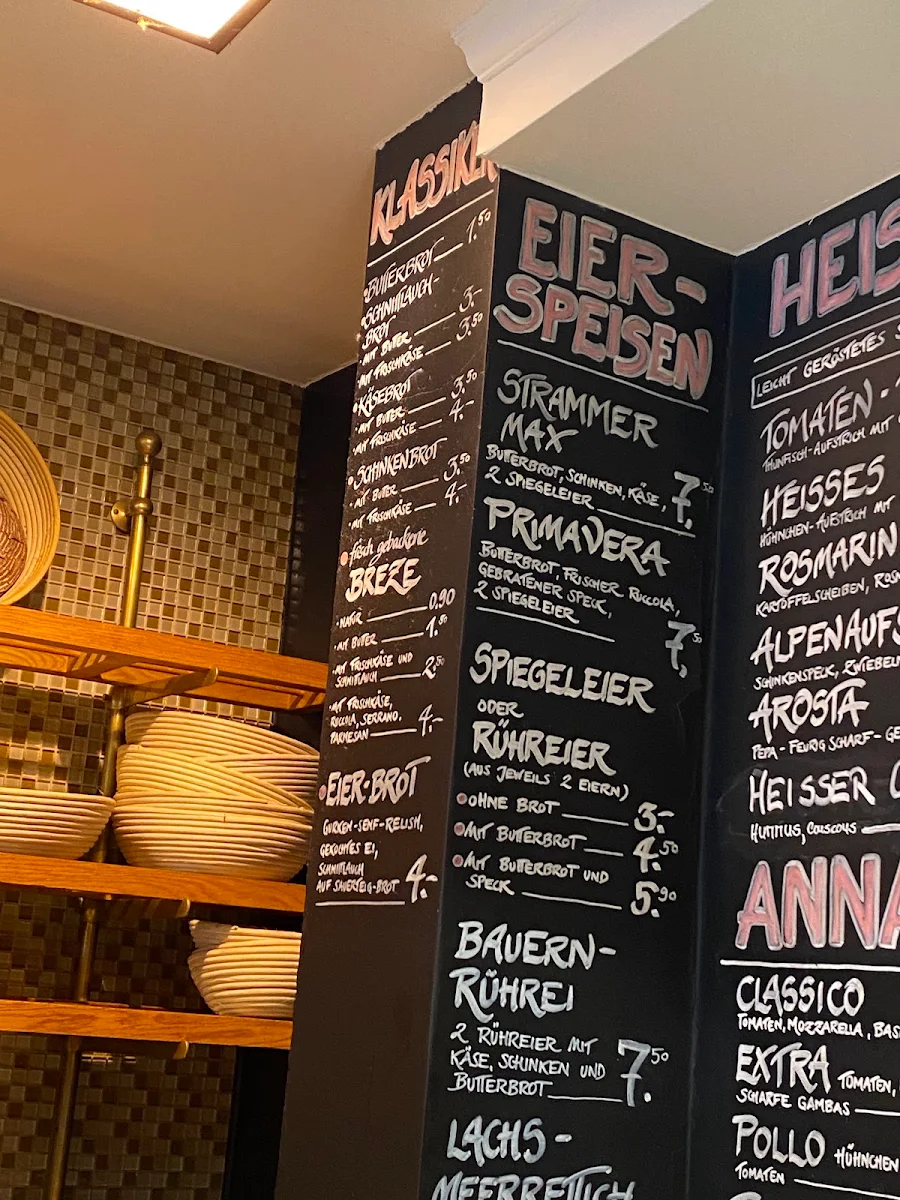 KLASSIKER
BUTTERBROT 1.50
SCHNITTLAUCH-
BROT
MIT BUTTER 3.-
MIT FRISCHKÄSE 3.50
KÄSEBROT
MIT BUTTER 3.50
MIT FRISCHKÄSE 4.-
SCHINKENBROT
MIT BUTTER 3.50
MIT FRISCHKÄSE 4.-
frisch gebackene
BREZE
NATUR 0,90
MIT BUTTER 1.80
MIT FRISCHKÄSE UND
SCHNITTLAUCH 2.50
MIT FRISCHKÄSE,
RUCOLA, SERRANO,
PARMESAN 4.-
EIER-BROT
GURKEN-SENF-RELISH,
GEKOCHTES EI,
SCHNITTLAUCH
AUF SAUERTEIG-BROT 4.-
EIER-
SPEISEN
STRAMMER
MAX
BUTTERBROT, SCHINKEN, KÄSE,
2 SPIEGELEIER 7.50
PRIMAVERA
BUTTERBROT, FRISCHER RUCOLA,
GEBRATENER SPECK,
2 SPIEGELEIER 7.50
SPIEGELEIER
ODER
RÜHREIER
(AUS JEWEILS 2 EIERN)
OHNE BROT 3.-
MIT BUTTERBROT 4.50
MIT BUTTERBROT UND
SPECK 5.90
BAUERN-
RÜHREI
2 RÜHREIER MIT
KÄSE, SCHINKEN UND
BUTTERBROT 7.50
LACHS-
MEERRETTICH
HEIS
LEICHT GERÖSTETES S
TOMATEN-
THUNFISCH-AUFSTRICH MIT
HEISSES
HÜHNCHEN-AUFSTRICH MIT
ROSMARIN
KARTOFFELSCHEIBEN, ROS
ALPENAUFS
SCHINKENSPECK, ZWIEBELN
AROSTA
PEPA-FEURIG SCHARF-GE
HEISSER
HUMMUS, COUSCOUS
ANNA
CLASSICO
TOMATEN, MOZZARELLA, BAS
EXTRA TOMATEN,
SCHARFE GAMBAS
POLLO HÜHNCHEN
TOMATEN